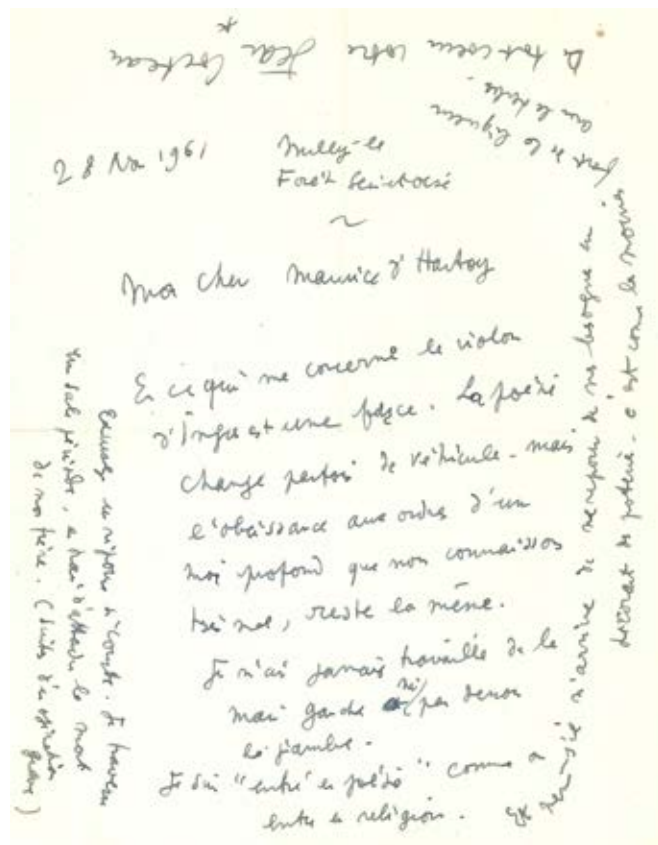 28 Nov 1961
Milly-la
Forêt Seine et Oise
~
Mon cher Maurice d'Hartoy
En ce qui me concerne le violon
d'Ingres est une farce. La poésie
change parfois de véhicule - mais
l'obéissance aux ordres d'un
moi profond que nous connaissons
très mal, reste la même.
Je n'ai jamais travaillé de la
main gauche ni par dessous
la jambe.
Je suis "entré en poésie" comme on
entre en religion.
Et s'il m'arrive de me reposer de ma besogne en
décorant des poteries - c'est comme la
fort de la
De tout coeur votre Jean Cocteau
*
Excusez ma réponse si courte. Je traverse
un sale période, en train d'attendre la mort
de mon frère. (suites d'opération
grave)